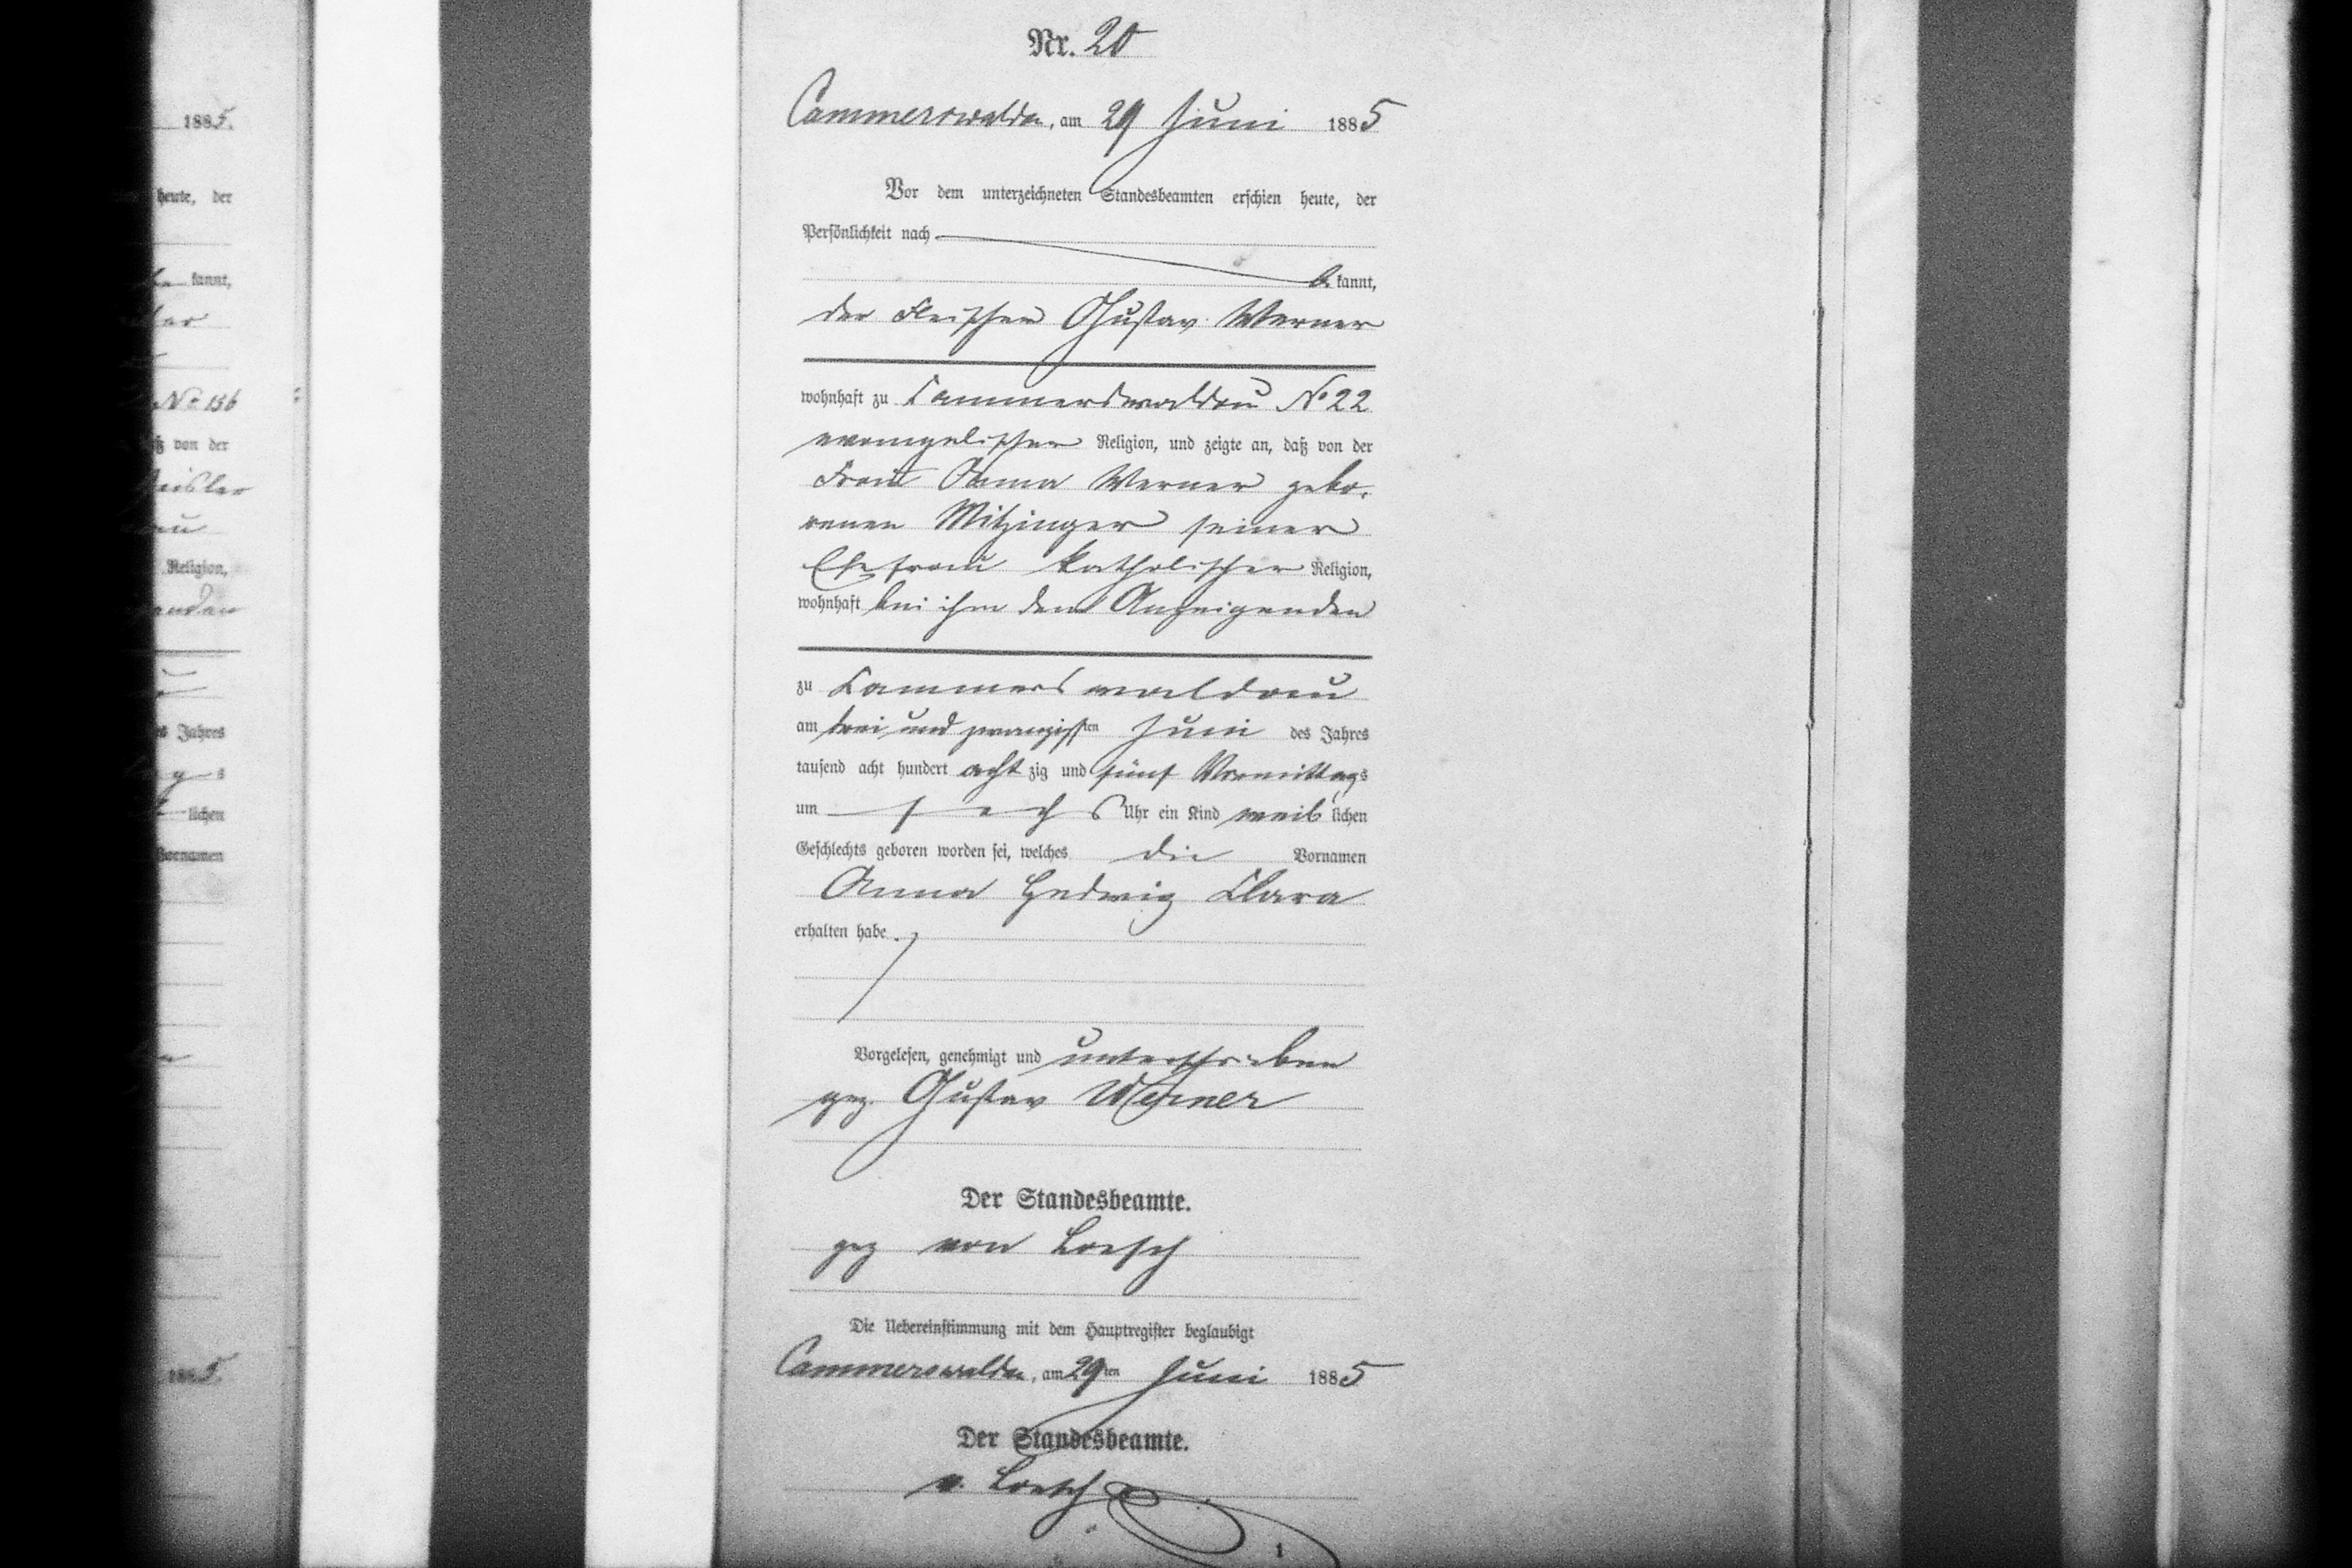 Nr. 20
Cammerswaldau, am 29 Juni 1885
Vor dem unterzeichneten Standesbeamten erschien heute, der
Persönlichkeit nach
be kannt,
der Fleischer Gustav Werner
wohnhaft zu Cammerswaldau No 22
evangelischer Religion, und zeigte an, daß von der
Frau Anna Werner gebo-
renen Mitzinger seiner
Ehefrau katholischer Religion,
wohnhaft bei ihm dem Anzeigenden
zu Cammerswaldau
am drei und zwanzigsten Juni des Jahres
tausend acht hundert acht zig und fünf Vormittags
um sechs Uhr ein Kind weib lichen
Geschlechts geboren worden sei, welches die Vornamen
Anna Hedwig Clara
erhalten habe.
Vorgelesen, genehmigt und unterschrieben
gez. Gustav Werner
Der Standesbeamte.
gez von Loesch
Die Uebereinstimmung mit dem Hauptregister beglaubigt
Cammerswaldau, am 29ten Juni 1885
Der Standesbeamte.
v. Loesch
1
1885.
heute, der
kannt,
No 156
von der
Religion,
Jahres
lichen
Vornamen
1885.